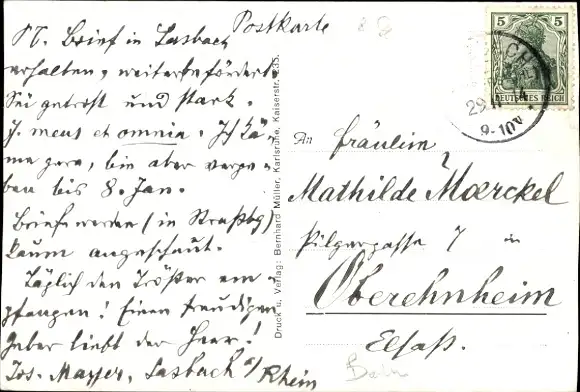 Postkarte
N. Brief in Sasbach
erhalten, weiterbefördert
Sei getrost und stark.
J. meus et omnia. Ich kä-
me gern, bin aber verge-
ben bis 8. Jan.
Briefe werden (in Straßbg)
kaum angeschaut.
Täglich den Tröster em-
pfangen! Einen freudigen
Geber liebt der Herr!
Jos. Mayer, Sasbach a/Rhein
Druck u. Verlag: Bernhard Müller, Karlsruhe, Kaiserstr. 235.
5 5
DEUTSCHES REICH
29
9-10V
An Fräulein
Mathilde Moerckel
Pilgergasse 7 in
Oberehnheim
Elsaß.